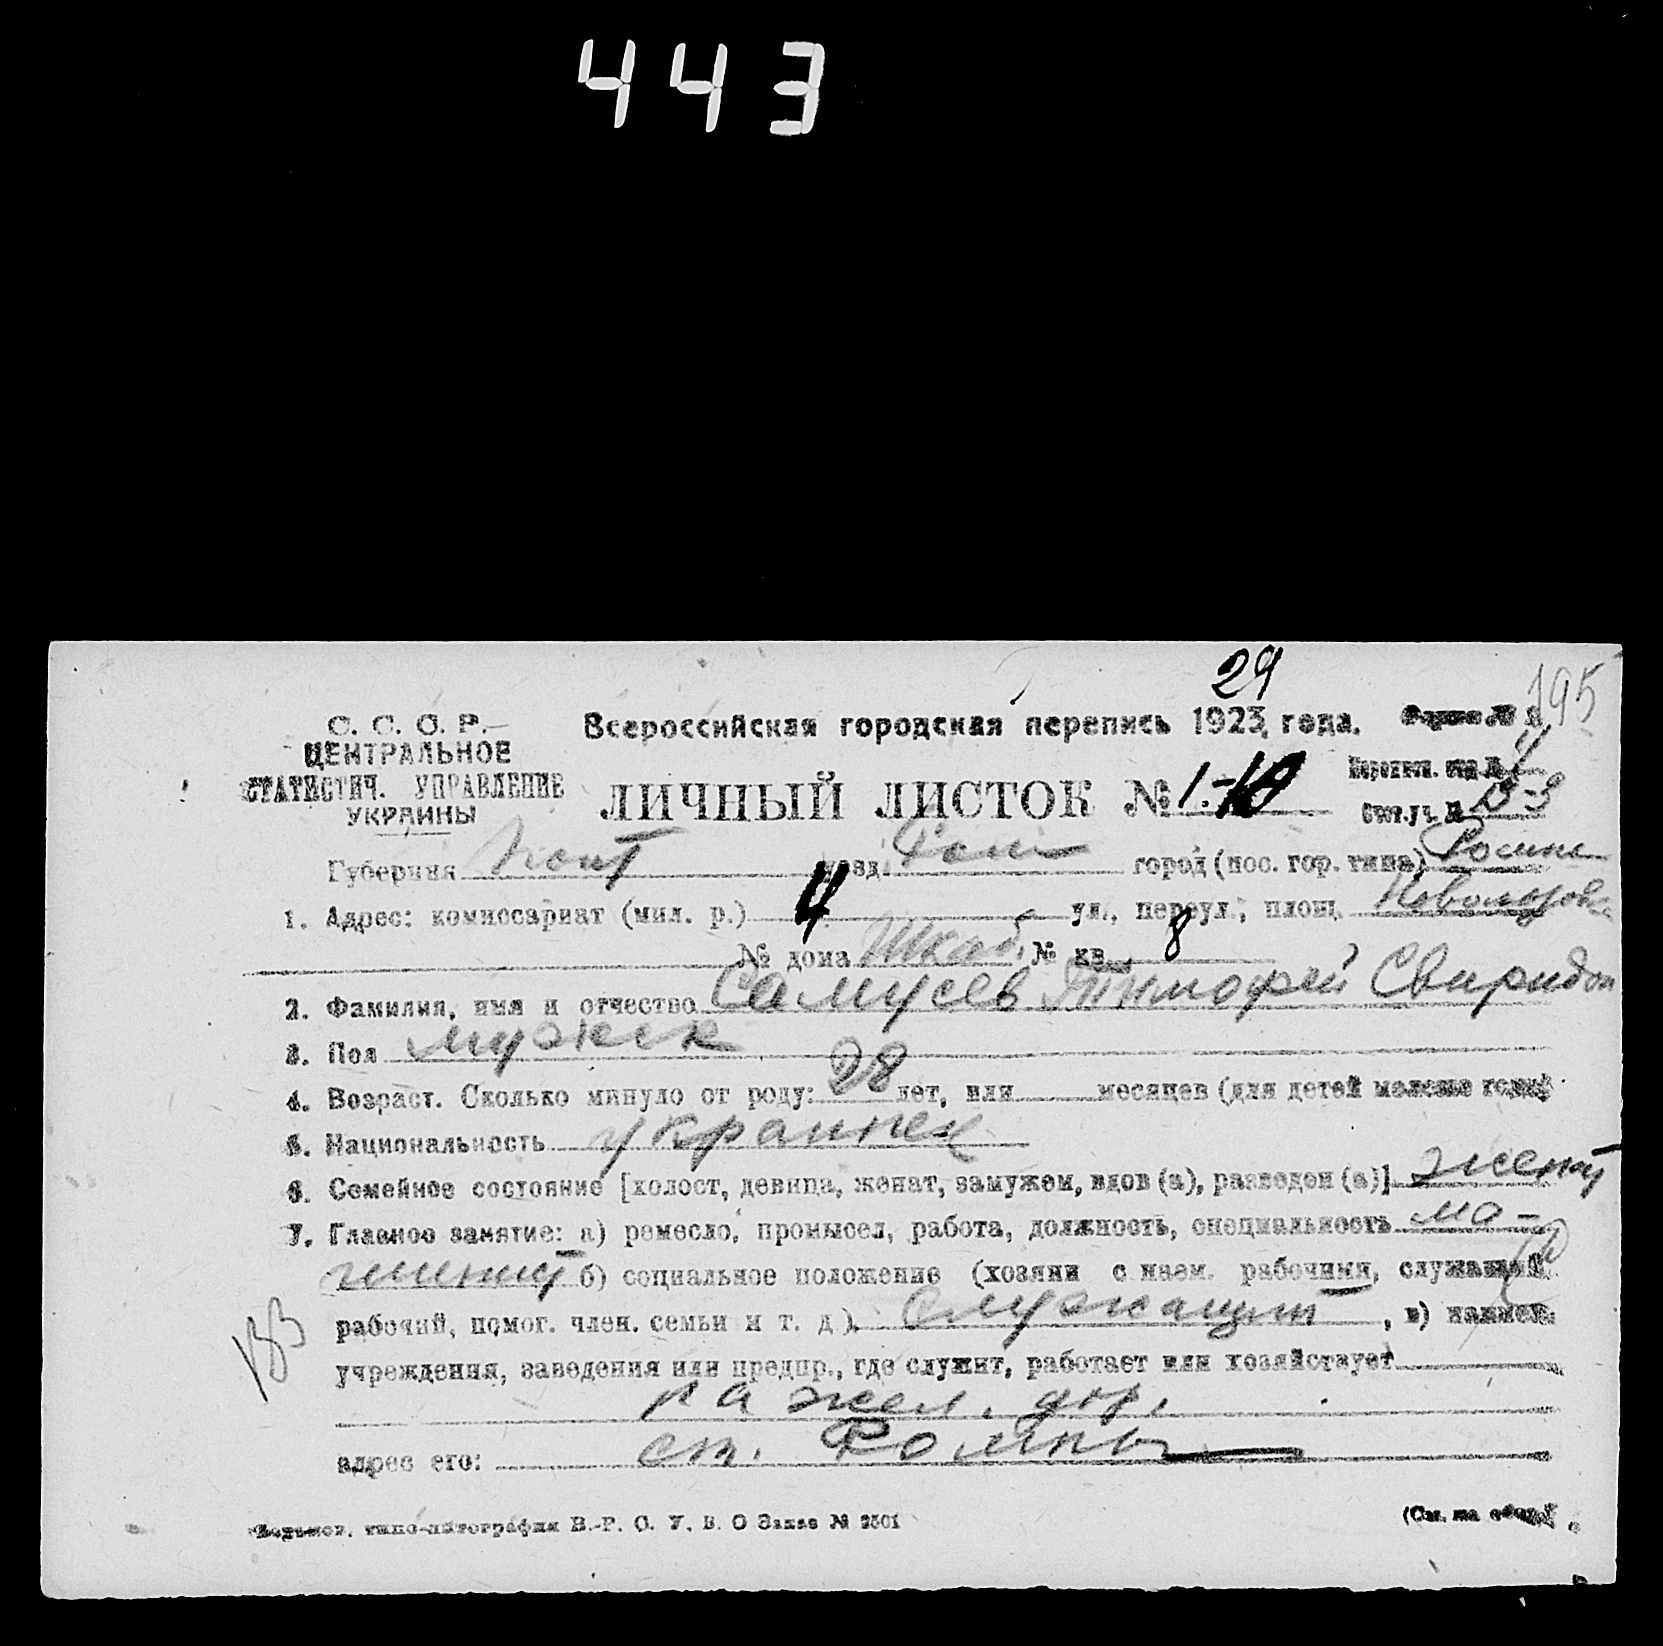 443
29
195
С. С. С. Р.
ЦЕНТРАЛЬНОЕ
СТАТИСТИЧ. УПРАВЛЕНИЕ
УКРАИНЫ
Всероссийская городская перепись 1923 года.
ЛИЧНЫЙ ЛИСТОК № 1.-10
Счет. уч. №
Губерния Полт уезд Ром город (пос. гор. типа) Ромны
1. Адрес: комиссариат (мил. р.) 4 ул., переул., площ.
№ дома № кв. 8
2. Фамилия, имя и отчество Самусев Тимофей Свиридон
3. Пол мужск
4. Возраст. Сколько минуло от роду: 28 лет, или месяцев (для детей моложе года)
5. Национальность украинец
6. Семейное состояние [холост, девица, женат, замужем, вдов (а), разведен (а)] женат
7. Главное занятие: а) ремесло, промысел, работа, должность, специальность ма-
шинист б) социальное положение (хозяин с наем. рабочими, служащий
рабочий, помог. член. семьи и т. д.). Служащий, в) наимен.
учреждения, заведения или предпр., где служит, работает или хозяйствует
на жел. дор.
адрес его: ст. Ромны
типо-литография В.-Р. О. У. В. О Заказ № 2501
(См. на обор.)